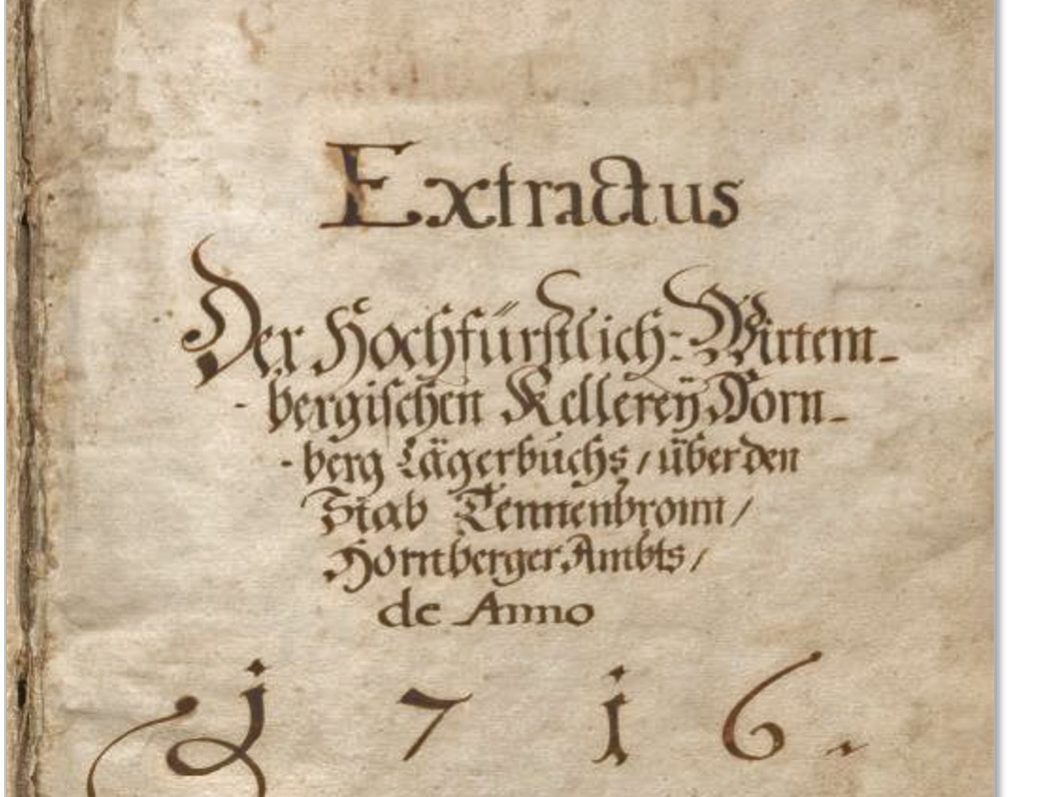 Extractus
Der Hochfürstlich-Wirtem-
-bergischen Kellereÿ Horn-
-berg Lägerbuchs / über den
Stab Tennenbronn /
Hornberger Ambts /
de Anno
1716.